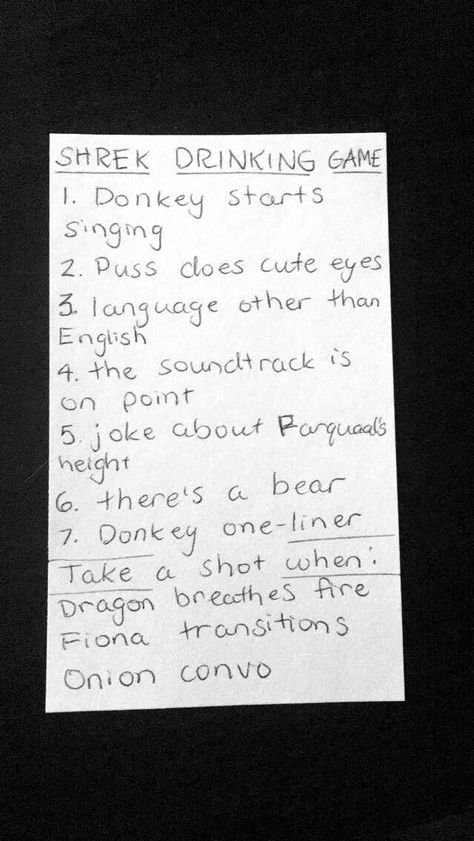 SHREK DRINKING GAME
1. Donkey starts
singing
2. Puss does cute eyes
3. language other than
English
4. the soundtrack is
on point
5. joke about Farquaad's
height
6. there's a bear
7. Donkey one-liner
Take a shot when:
Dragon breathes fire
Fiona transitions
Onion convo